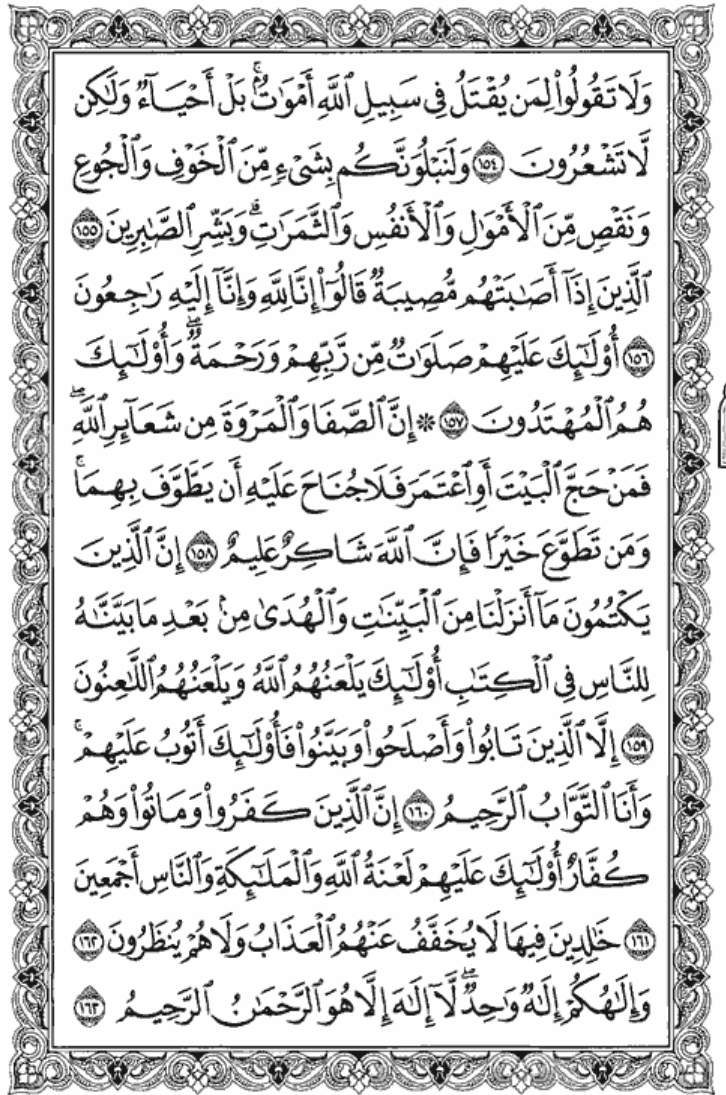 وَلَا تَقُولُوا۟ لِمَن يُقْتَلُ فِى سَبِيلِ ٱللَّهِ أَمْوَٰتٌۢ ۚ بَلْ أَحْيَآءٌ وَلَٰكِن
لَّا تَشْعُرُونَ ١٥٤ وَلَنَبْلُوَنَّكُم بِشَىْءٍ مِّنَ ٱلْخَوْفِ وَٱلْجُوعِ
وَنَقْصٍ مِّنَ ٱلْأَمْوَٰلِ وَٱلْأَنفُسِ وَٱلثَّمَرَٰتِ ۗ وَبَشِّرِ ٱلصَّٰبِرِينَ ١٥٥
ٱلَّذِينَ إِذَآ أَصَٰبَتْهُم مُّصِيبَةٌ قَالُوٓا۟ إِنَّا لِلَّهِ وَإِنَّآ إِلَيْهِ رَٰجِعُونَ
١٥٦ أُو۟لَٰٓئِكَ عَلَيْهِمْ صَلَوَٰتٌ مِّن رَّبِّهِمْ وَرَحْمَةٌ ۖ وَأُو۟لَٰٓئِكَ
هُمُ ٱلْمُهْتَدُونَ ١٥٧ ۞ إِنَّ ٱلصَّفَا وَٱلْمَرْوَةَ مِن شَعَآئِرِ ٱللَّهِ ۖ
فَمَنْ حَجَّ ٱلْبَيْتَ أَوِ ٱعْتَمَرَ فَلَا جُنَاحَ عَلَيْهِ أَن يَطَّوَّفَ بِهِمَا ۚ
وَمَن تَطَوَّعَ خَيْرًا فَإِنَّ ٱللَّهَ شَاكِرٌ عَلِيمٌ ١٥٨ إِنَّ ٱلَّذِينَ
يَكْتُمُونَ مَآ أَنزَلْنَا مِنَ ٱلْبَيِّنَٰتِ وَٱلْهُدَىٰ مِنۢ بَعْدِ مَا بَيَّنَّٰهُ
لِلنَّاسِ فِى ٱلْكِتَٰبِ أُو۟لَٰٓئِكَ يَلْعَنُهُمُ ٱللَّهُ وَيَلْعَنُهُمُ ٱللَّٰعِنُونَ
١٥٩ إِلَّا ٱلَّذِينَ تَابُوا۟ وَأَصْلَحُوا۟ وَبَيَّنُوا۟ فَأُو۟لَٰٓئِكَ أَتُوبُ عَلَيْهِمْ ۚ
وَأَنَا ٱلتَّوَّابُ ٱلرَّحِيمُ ١٦٠ إِنَّ ٱلَّذِينَ كَفَرُوا۟ وَمَاتُوا۟ وَهُمْ
كُفَّارٌ أُو۟لَٰٓئِكَ عَلَيْهِمْ لَعْنَةُ ٱللَّهِ وَٱلْمَلَٰٓئِكَةِ وَٱلنَّاسِ أَجْمَعِينَ
١٦١ خَٰلِدِينَ فِيهَا لَا يُخَفَّفُ عَنْهُمُ ٱلْعَذَابُ وَلَا هُمْ يُنظَرُونَ ١٦٢
وَإِلَٰهُكُمْ إِلَٰهٌ وَٰحِدٌ ۖ لَّآ إِلَٰهَ إِلَّا هُوَ ٱلرَّحْمَٰنُ ٱلرَّحِيمُ ١٦٣